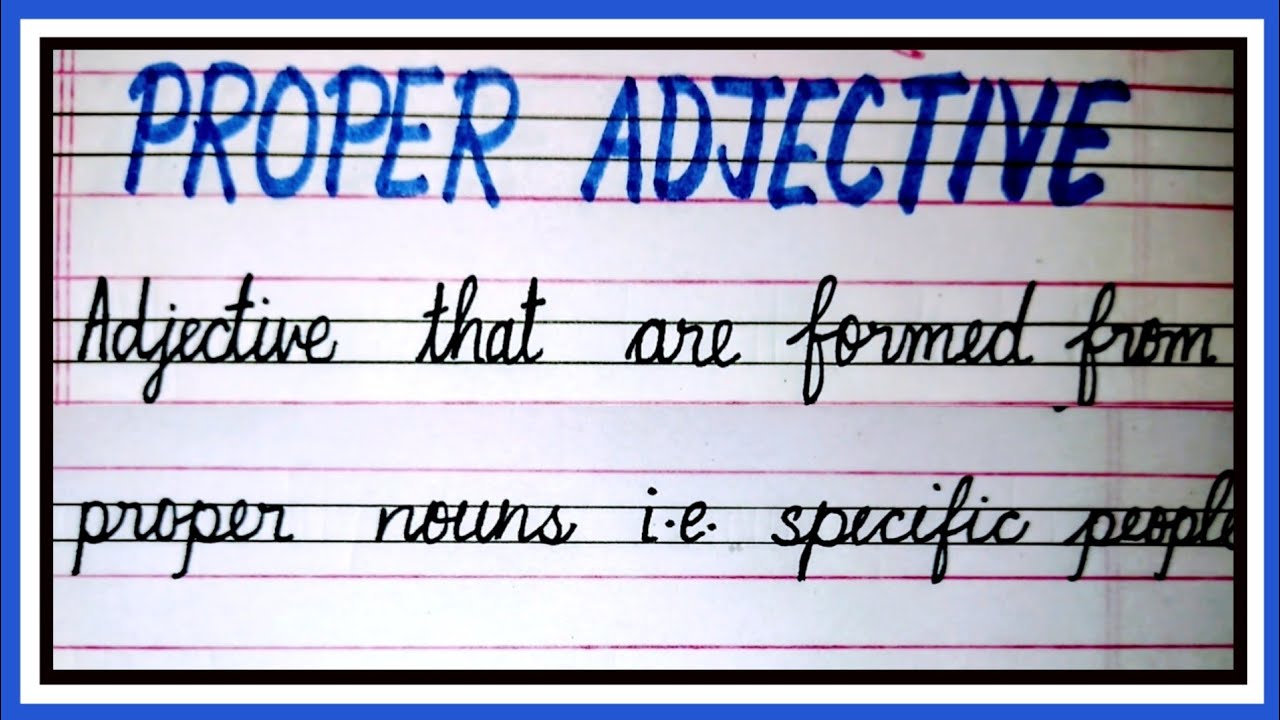 PROPER ADJECTIVE
Adjective that are formed from
proper nouns i.e. specific people